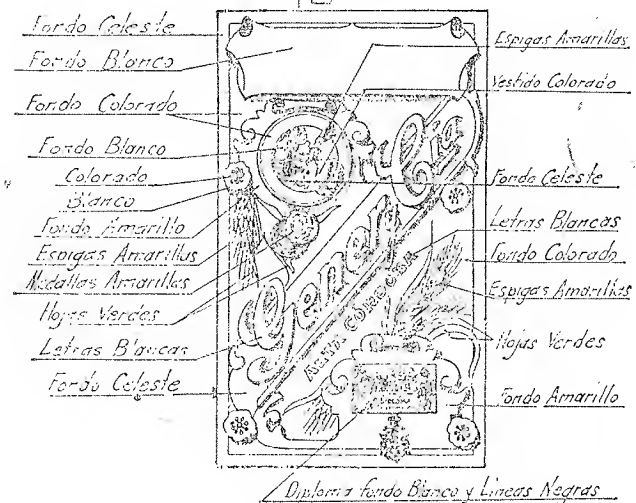 Fondo Celeste
Fondo Blanco
Fondo Colorado
Fondo Blanco
Colorado
Blanco
Fondo Amarillo
Espigas Amarillas
Medallas Amarillas
Hojas Verdes
Letras Blancas
Fondo Celeste
Espigas Amarillas
Vestido Colorado
Fondo Celeste
Letras Blancas
Fondo Colorado
Espigas Amarillas
Hojas Verdes
Fondo Amarillo
Diploma fondo Blanco y Líneas Negras